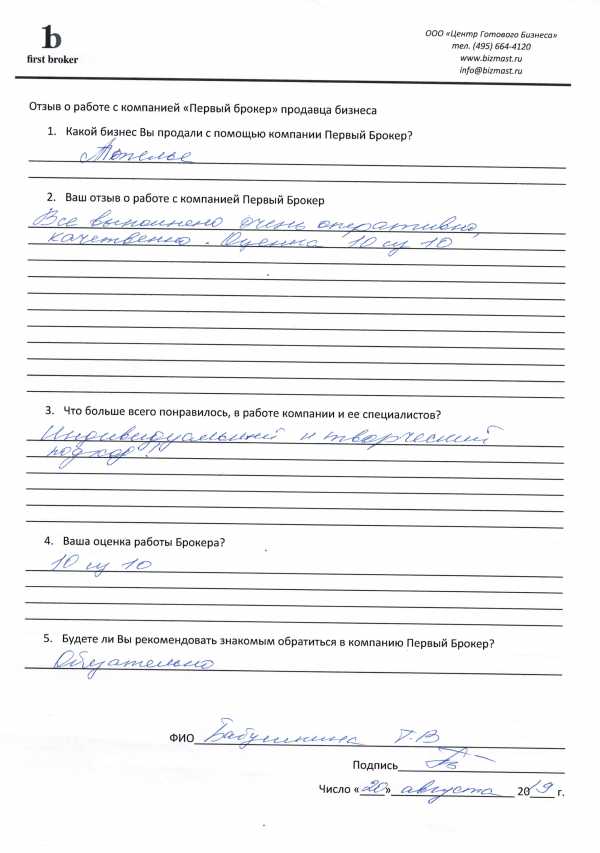 b
first broker
ООО «Центр Готового Бизнеса»
тел. (495) 664-4120
www.bizmast.ru
info@bizmast.ru
Отзыв о работе с компанией «Первый брокер» продавца бизнеса
1. Какой бизнес Вы продали с помощью компании Первый Брокер?
Ателье
2. Ваш отзыв о работе с компанией Первый Брокер
Все выполнено очень оперативно,
качественно. Оценка 10 из 10
3. Что больше всего понравилось, в работе компании и ее специалистов?
Индивидуальный и творческий
подход!!
4. Ваша оценка работы Брокера?
10 из 10
5. Будете ли Вы рекомендовать знакомым обратиться в компанию Первый Брокер?
Обязательно
ФИО Бабушкина Г.В
Подпись
Число «20» августа 2019 г.